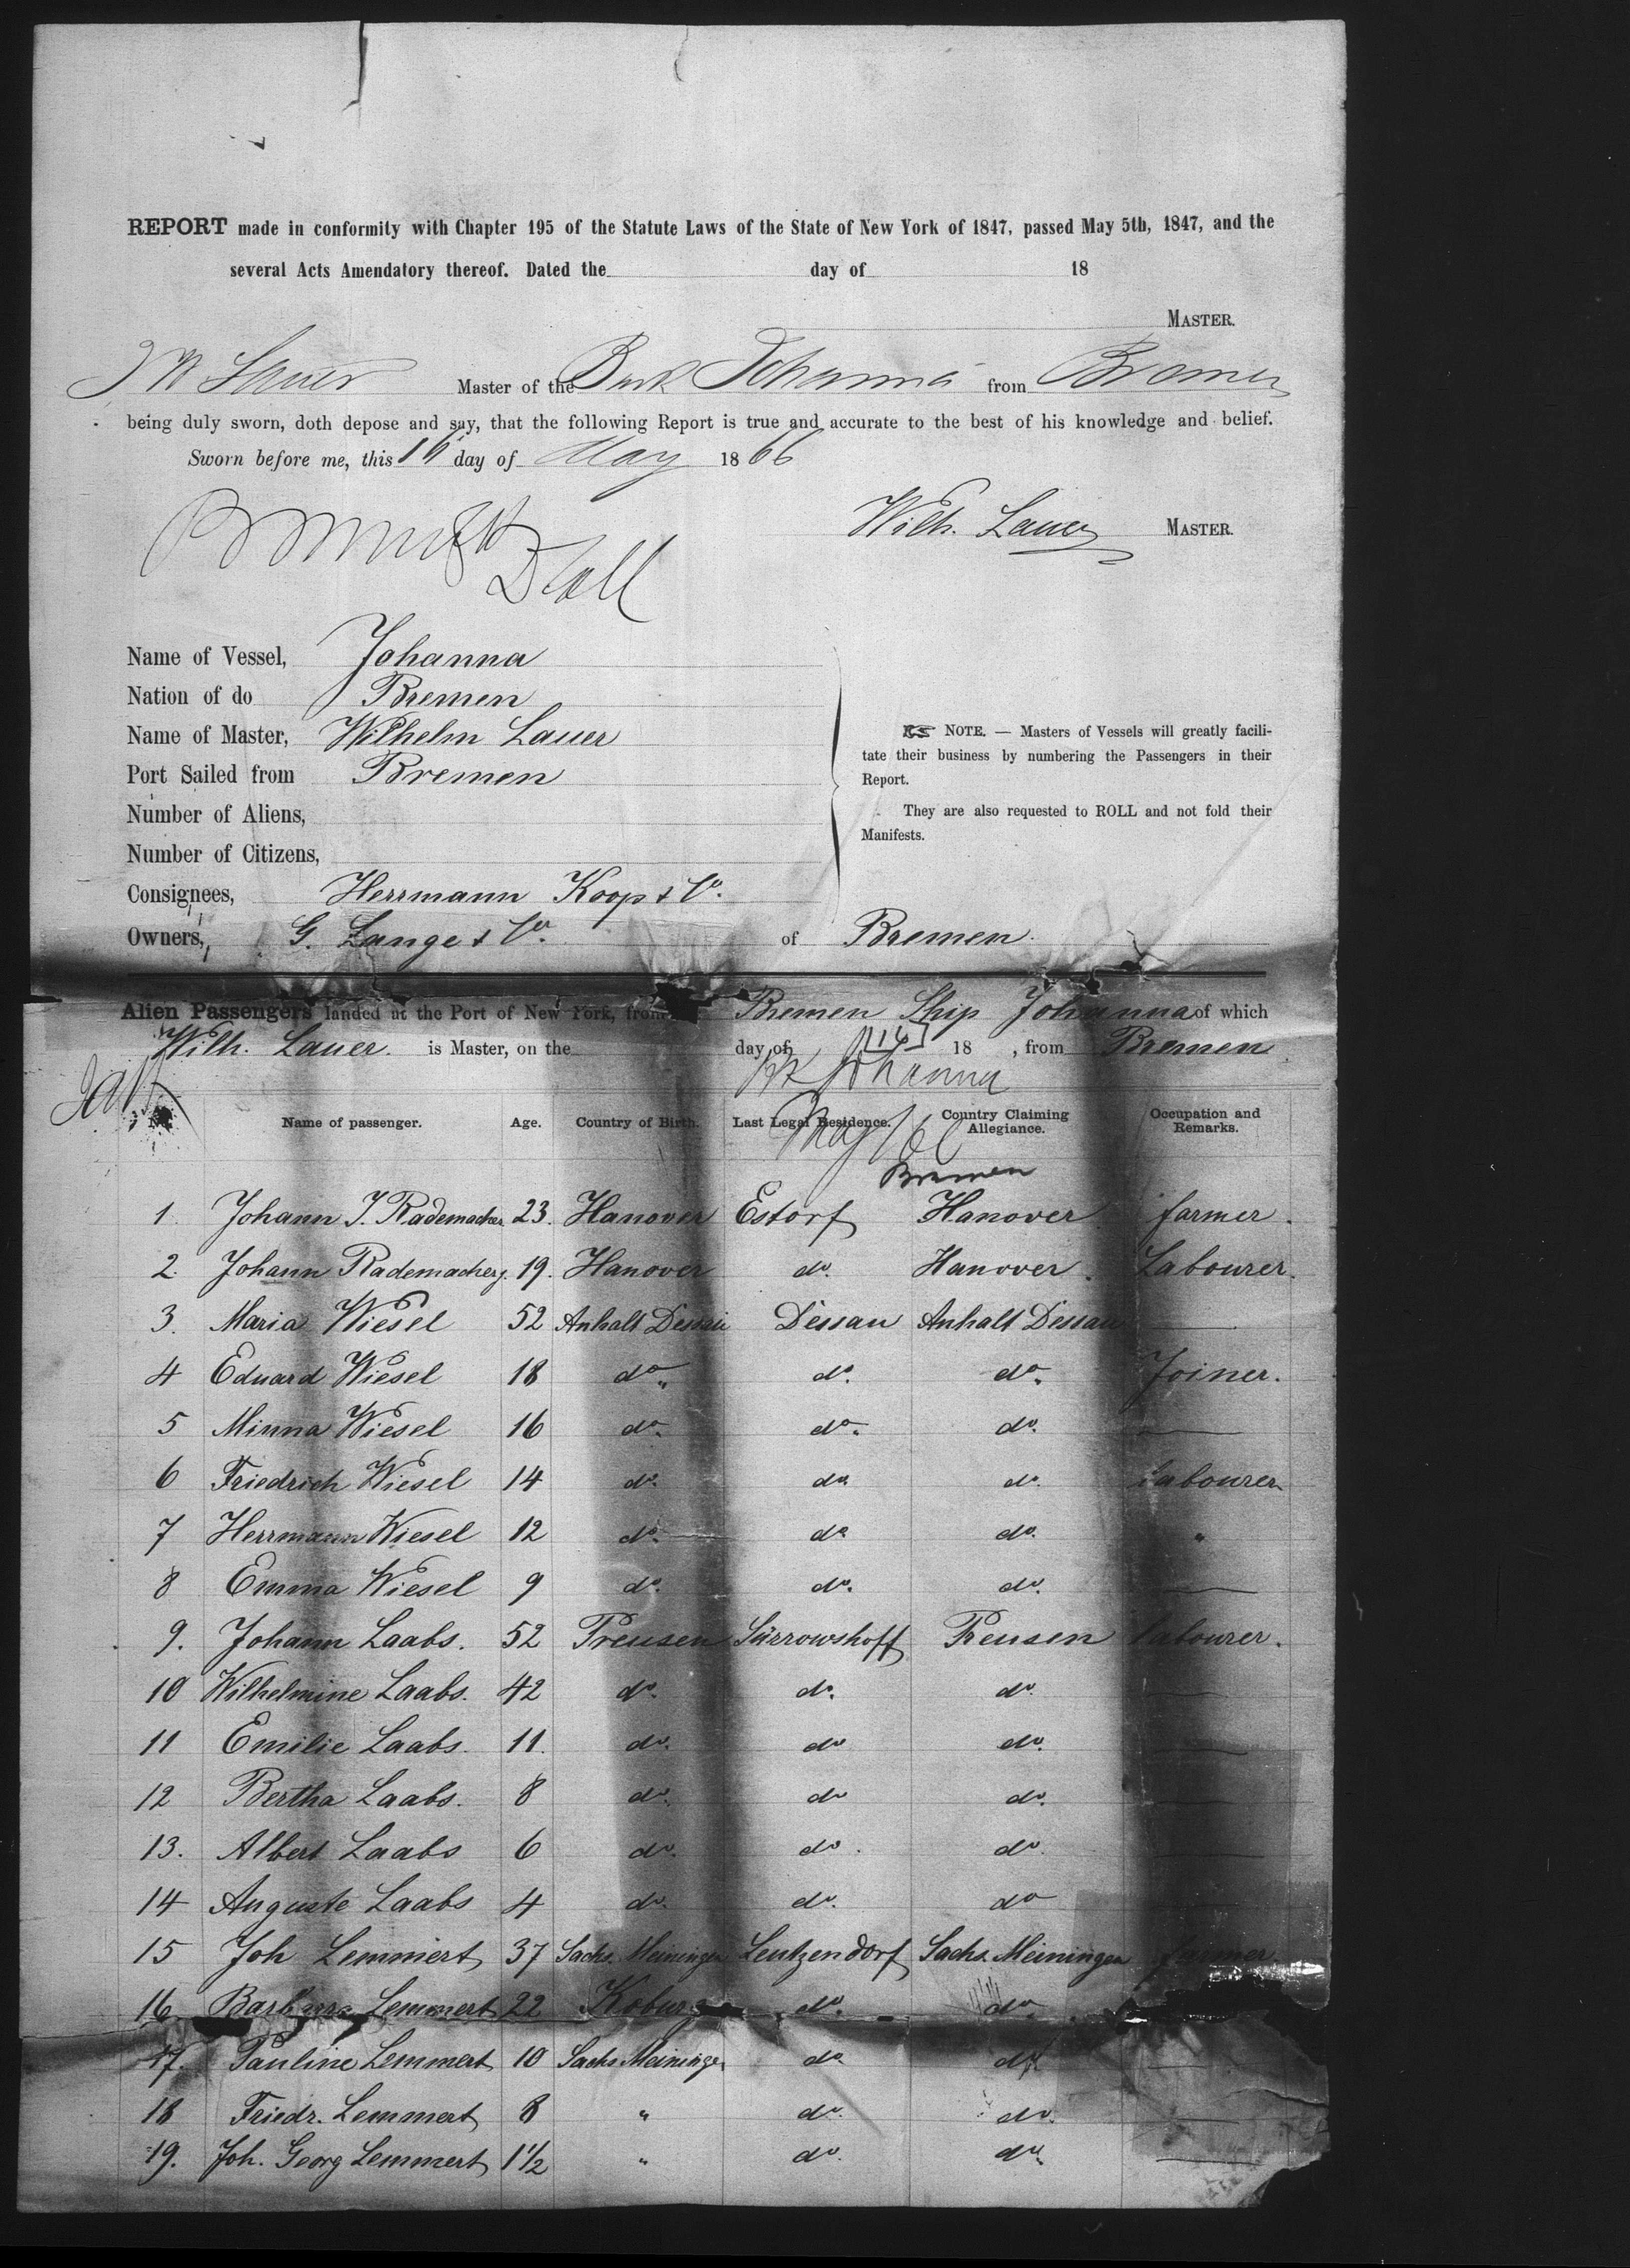 REPORT made in conformity with Chapter 195 of the Statute Laws of the State of New York of 1847, passed May 5th, 1847, and the
several Acts Amendatory thereof. Dated the day of 18
MASTER.
Lauer Master of the Bark Johanna from Bremen
being duly sworn, doth depose and say, that the following Report is true and accurate to the best of his knowledge and belief.
Sworn before me, this 16 day of May 1866
Wilh. Lauer MASTER.
Name of Vessel, Johanna
Nation of do Bremen
Name of Master, Wilhelm Lauer
Port Sailed from Bremen
Number of Aliens,
Number of Citizens,
Consignees, Herrmann Koop & Co.
Owners, G. Lange & Co. of Bremen.
NOTE. — Masters of Vessels will greatly facili-
tate their business by numbering the Passengers in their
Report.
They are also requested to ROLL and not fold their
Manifests.
Alien Passengers landed at the Port of New York, from Bremen Ship Johanna of which
Wilh. Lauer. is Master, on the day of 16 18 , from Bremen
Bk Johanna
May 66
No. Name of passenger. Age. Country of Birth. Last Legal Residence. Country Claiming Allegiance. Occupation and Remarks.
Bremen
1. Johann J. Rademacher 23. Hanover Estorf Hanover farmer.
2. Johann Rademacher 19. Hanover do. Hanover. Labourer.
3. Maria Wiesel 52 Anhalt Dessau Dessau Anhalt Dessau —
4 Eduard Wiesel 18 do. do. do. Joiner.
5 Minna Wiesel 16 do. do. do. —
6 Friedrich Wiesel 14 do. do. do. Labourer
7 Herrmann Wiesel 12 do. do. do. "
8 Emma Wiesel 9 do. do. do. —
9. Johann Laabs. 52 Preusen Sürrowshoff Preusen labourer.
10 Wilhelmine Laabs. 42 do. do. do. —
11 Emilie Laabs. 11. do. do do. —
12 Bertha Laabs. 8 do. do do. —
13. Albert Laabs 6 do. do. do. —
14 Auguste Laabs 4 do. do. do
15 Joh Lemmert 37 Sachs. Meiningen Leutzendorf Sachs. Meiningen farmer
16 Barbara Lemmert 22 Koburg do. do
17. Pauline Lemmert 10 Sachs Meiningen do. do —
18 Friedr. Lemmert 8 " do. do. —
19. Joh. Georg Lemmert 1 1/2 " do. do. —